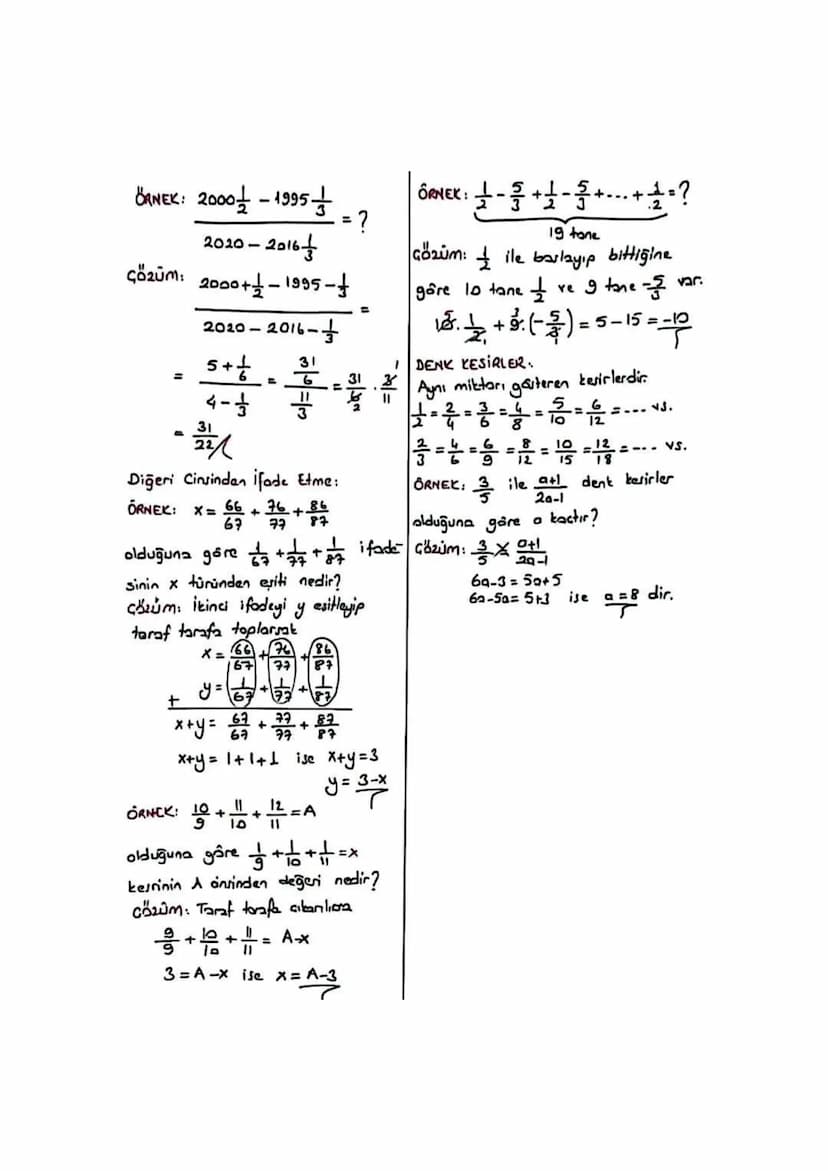 ÖRNEK: (2000 1/2 − 1995 1/3) / (2020 − 2016 1/3) = ?
ÇÖZÜM: (2000 + 1/2 − 1995 − 1/3) / (2020 − 2016 − 1/3) =
= (5 + 1/6) / (4 − 1/3) = (31/6) / (11/3) = 31/6 2 . 3/11 1
= 31/22
Diğeri Cinsinden İfade Etme:
ÖRNEK: x = 66/67 + 76/77 + 86/87
olduğuna göre 1/67 + 1/77 + 1/87 ifade
sinin x türünden eşiti nedir?
ÇÖZÜM: İkinci ifadeyi y eşitleyip
taraf tarafa toplarsak
x = 66/67 + 76/77 + 86/87
+ y = 1/67 + 1/77 + 1/87
x+y = 67/67 + 77/77 + 87/87
x+y = 1+1+1 ise x+y=3
y = 3-x
ÖRNEK: 10/9 + 11/10 + 12/11 = A
olduğuna göre 1/9 + 1/10 + 1/11 = x
kesrinin A cinsinden değeri nedir?
ÇÖZÜM: Taraf tarafa çıkarılırsa
9/9 + 10/10 + 11/11 = A-x
3 = A-x ise x = A-3
ÖRNEK: 1/2 − 5/3 + 1/2 − 5/3 + ... + 1/2 = ?
19 tane
ÇÖZÜM: 1/2 ile başlayıp bittiğine
göre 10 tane 1/2 ve 9 tane −5/3 var.
10 5 . 1/2 1 + 9 3 . (−5/3 1) = 5 − 15 = −10
DENK KESİRLER:
Aynı miktarı gösteren kesirlerdir.
1/2 = 2/4 = 3/6 = 4/8 = 5/10 = 6/12 = ... vs.
2/3 = 4/6 = 6/9 = 8/12 = 10/15 = 12/18 = ... vs.
ÖRNEK: 3/5 ile a+1/2a-1 denk kesirler
olduğuna göre a kaçtır?
ÇÖZÜM: 3/5 a+1/2a-1
6a-3 = 5a+5
6a-5a = 5+3 ise a = 8 dir.